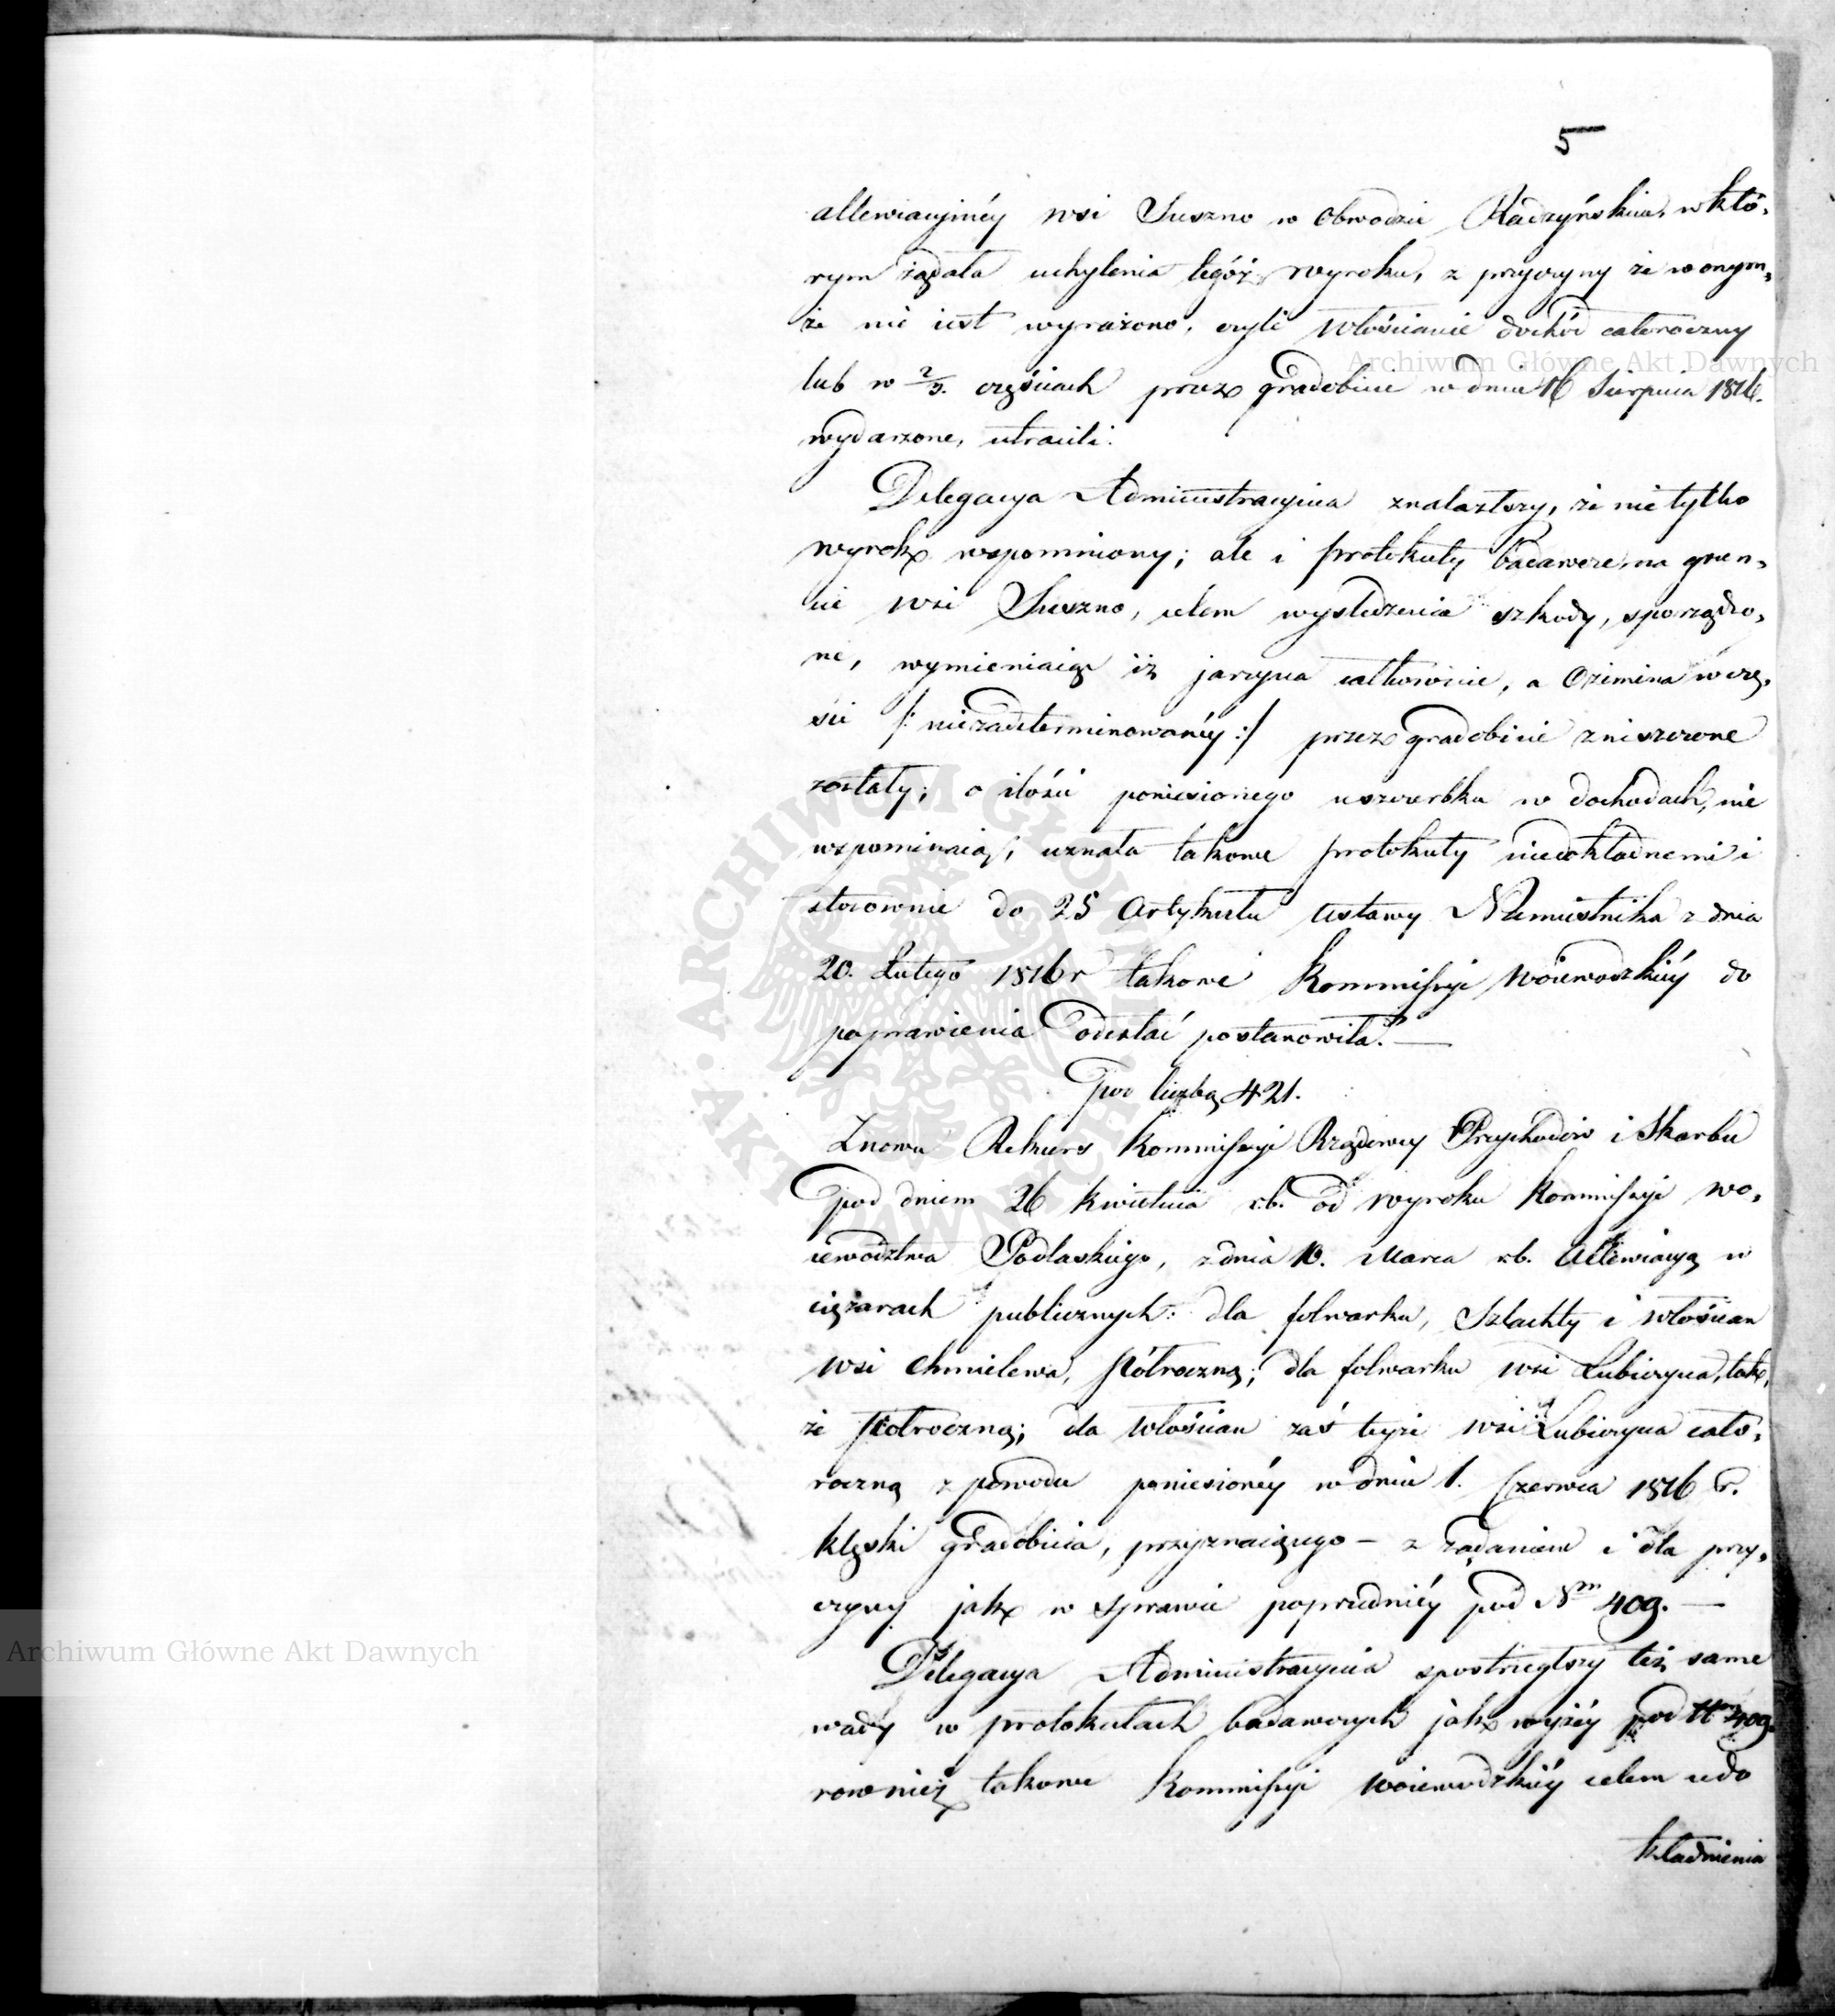 5
allewiacyinéy wsi Suszno w Obwodzie Radzyńskim, w któ,
rym żądała uchylenia tegóż wyroku, z przyczyny że w onym,
że nie iest wyrażono, czyli Włościanie dochód całoroczny
lub w 2/3. częściach przez gradobicie w dniu 16 Sierpnia 1816.
wydarzone, utracili.
Delegacya Administracyina znalazłszy, że nie tylko
wyrok wspomniony; ale i protokuły badawcze, na grun,
cie wsi Suszno, celem wyśledzenia szkody, sporządzo,
ne, wymieniaiąc iż jarzyna całkowicie, a Ozimina w czę,
ści /: niezadeterminowanéy :/ przez gradobicie zniszczone
zostały; o ilości poniesionego uszczerbku w dochodach, nie
wspominaią; uznała takowe protokuły niedokładnemi i
stosownie do 25 Artykułu Ustawy Namiestnika z dnia
20. Lutego 1816 r takowe Kommissyi Woiewodzkiéy do
poprawienia odesłać postanowiła. —
Pod liczbą 421.
Znowu Rekurs Kommissyi Rządowey Przychodów i Skarbu
pod dniem 26 Kwietnia r.b. od wyroku Kommissyi Wo,
iewodztwa Podlaskiego, z dnia 10. Marca r.b. Allewiacyą w
ciężarach publicznych: dla folwarku, Szlachty i włościan
wsi Chmielewa, półroczną; dla folwarku wsi Lubiczyna, tak,
że półroczną; dla Włościan zaś teyże wsi Lubiczyna cało,
roczną z powodu poniesionéy w dniu 1. Czerwca 1816 r.
klęski gradobicia, przyznaiącego — z żądaniem i dla przy,
czyny jak w sprawie poprzedniéy pod Nm 409. —
Delegacya Administracyina spostrzegłszy też same
wady w protokułach badawczych jak wyżéy pod Nm 409.
rownież takowe Kommissyi Woiewodzkiéy celem udo
kładnienia
Archiwum Główne Akt Dawnych
Archiwum Główne Akt Dawnych
ARCHIWUM GŁÓWNE AKT DAWNYCH